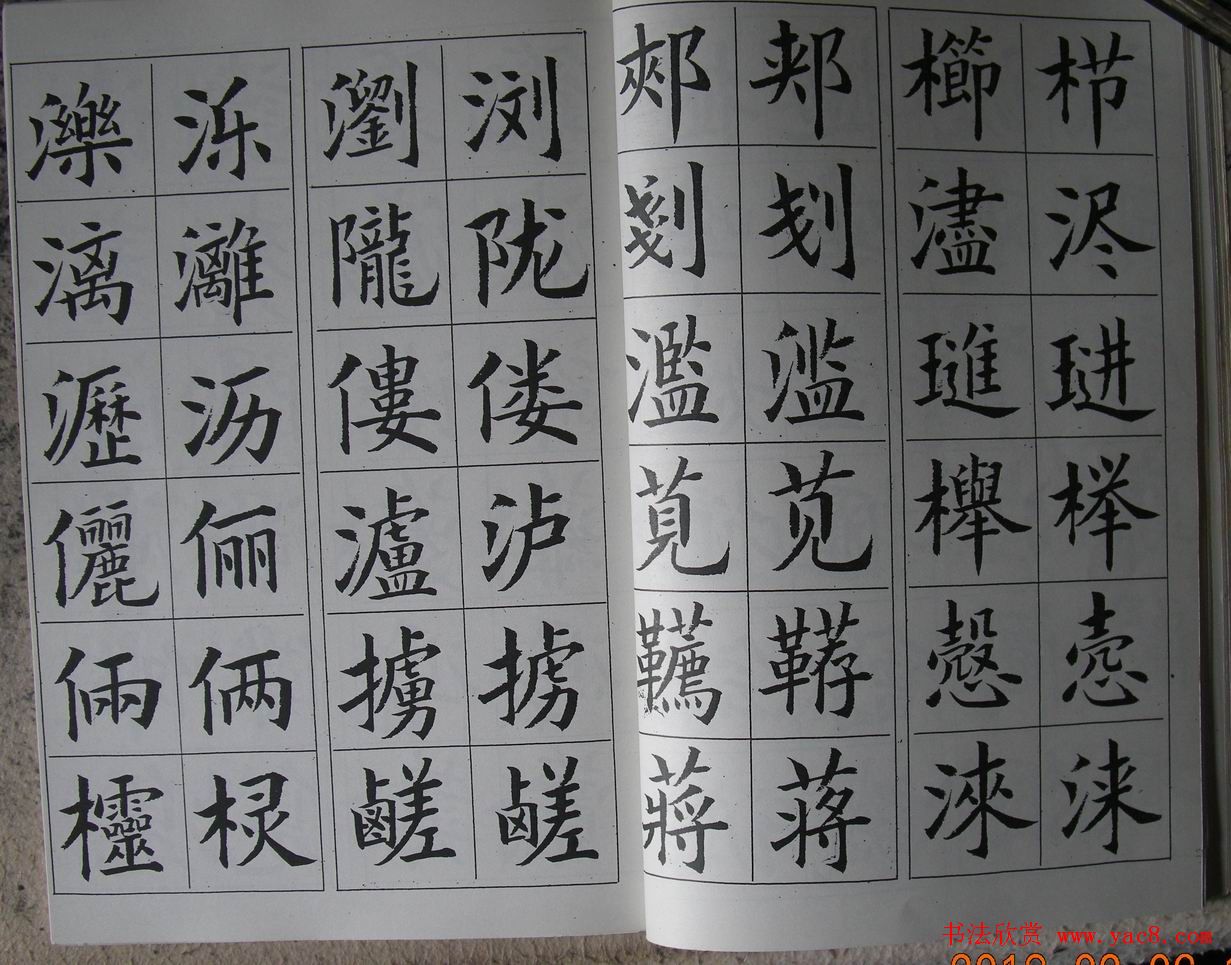 濼 泺 瀏 浏
漓 灕 隴 陇
瀝 沥 僂 偻
儷 俪 瀘 泸
倆 俩 擄 掳
欞 棂 鹺 鹾
郟 郏 櫛 栉
剗 刬 濜 浕
濫 滥 璡 琎
莧 苋 櫸 榉
韉 鞯 慤 悫
蔣 蒋 淶 涞
书法欣赏 www.yac8.com